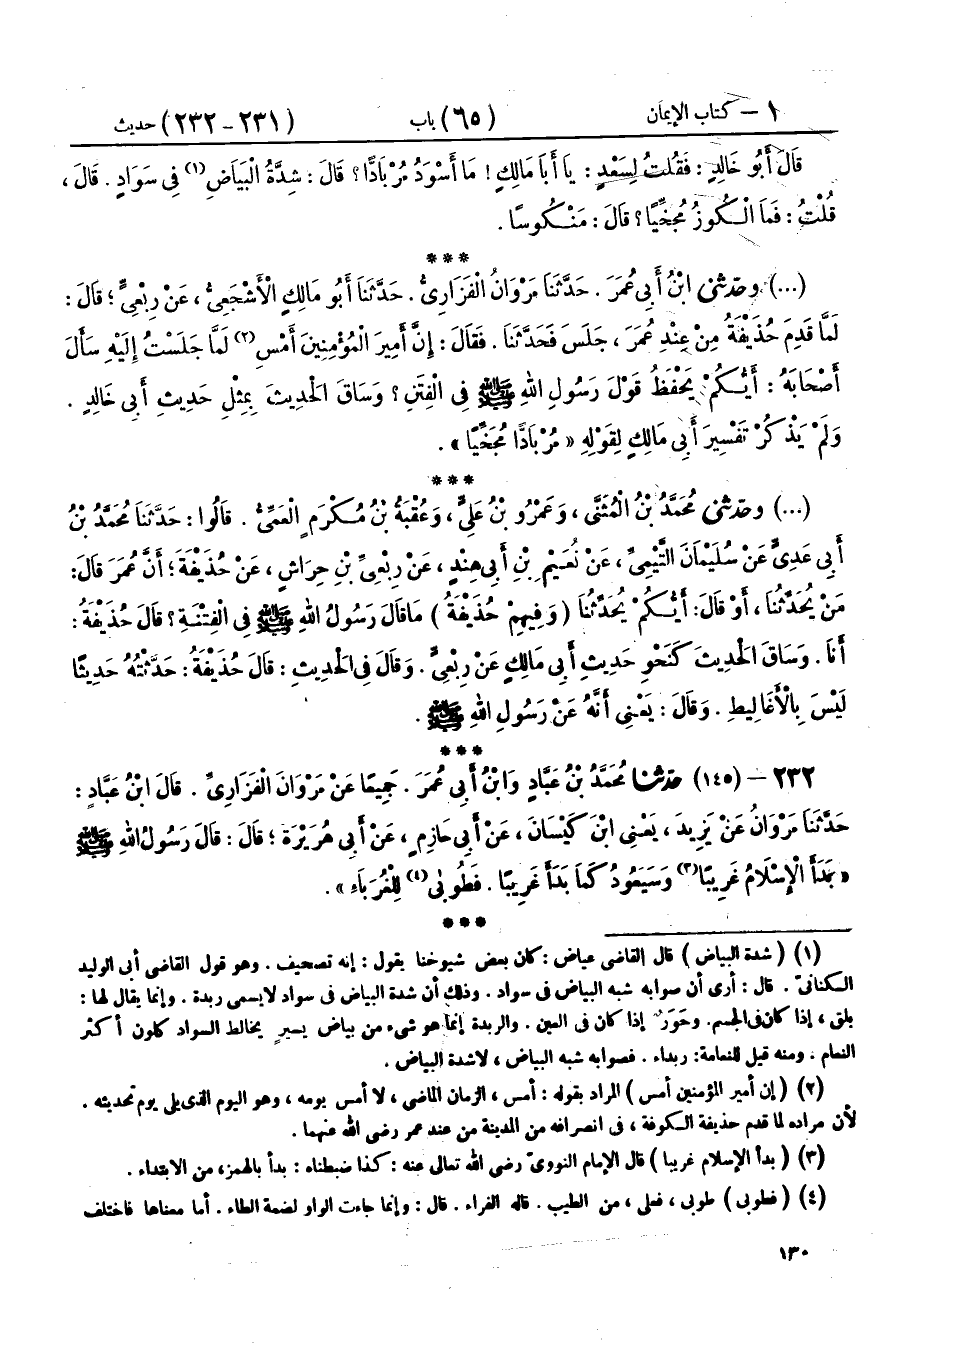 ١ – كتاب الإيمان (٦٥) باب (٢٣١ – ٢٣٢) حديث
قَالَ أَبُو خَالِدٍ : فَقُلْتُ لِسَعْدٍ : يَا أَبَا مَالِكٍ ! مَا أَسْوَدُ مُرْبَادًّا ؟ قَالَ : شِدَّةُ الْبَيَاضِ(١) فِي سَوَادٍ . قَالَ ،
قُلْتُ : فَمَا الْكُوزُ مُجَخِّيًا ؟ قَالَ : مَنْكُوسًا .
***
(...) وحدثنى ابْنُ أَبِي عُمَرَ . حَدَّثَنَا مَرْوَانُ الْفَزَارِىُّ . حَدَّثَنَا أَبُو مَالِكٍ الْأَشْجَعِىُّ ، عَنْ رِبْعِىٍّ ؛ قَالَ :
لَمَّا قَدِمَ حُذَيْفَةُ مِنْ عِنْدِ عُمَرَ ، جَلَسَ فَحَدَّثَنَا . فَقَالَ : إِنَّ أَمِيرَ الْمُؤْمِنِينَ أَمْسِ(٢) لَمَّا جَلَسْتُ إِلَيْهِ سَأَلَ
أَصْحَابَهُ : أَيُّكُمْ يَحْفَظُ قَوْلَ رَسُولِ اللهِ ﷺ فِى الْفِتَنِ ؟ وَسَاقَ الْحَدِيثَ بِمِثْلِ حَدِيثِ أَبِى خَالِدٍ .
وَلَمْ يَذْكُرْ تَفْسِيرَ أَبِى مَالِكٍ لِقَوْلِهِ « مُرْبَادًّا مُجَخِّيًا » .
***
(...) وحدثنى مُحَمَّدُ بْنُ الْمُثَنَّى ، وَعَمْرُو بْنُ عَلِىٍّ ، وَعُقْبَةُ بْنُ مُكْرَمٍ الْعَمِّىُّ . قَالُوا : حَدَّثَنَا مُحَمَّدُ بْنُ
أَبِى عَدِىٍّ عَنْ سُلَيْمَانَ التَّيْمِىِّ ، عَنْ نُعَيْمِ بْنِ أَبِى هِنْدٍ ، عَنْ رِبْعِىِّ بْنِ حِرَاشٍ ، عَنْ حُذَيْفَةَ ؛ أَنَّ عُمَرَ قَالَ :
مَنْ يُحَدِّثُنَا ، أَوْ قَالَ : أَيُّكُمْ يُحَدِّثُنَا ( وَفِيهِمْ حُذَيْفَةُ ) مَا قَالَ رَسُولُ اللهِ ﷺ فِى الْفِتْنَةِ ؟ قَالَ حُذَيْفَةُ :
أَنَا . وَسَاقَ الْحَدِيثَ كَنَحْوِ حَدِيثِ أَبِى مَالِكٍ عَنْ رِبْعِىٍّ . وَقَالَ فِى الْحَدِيثِ : قَالَ حُذَيْفَةُ : حَدَّثْتُهُ حَدِيثًا
لَيْسَ بِالْأَغَالِيطِ . وَقَالَ : يَعْنِى أَنَّهُ عَنْ رَسُولِ اللهِ ﷺ .
***
٢٣٢ – (١٤٥) حدثنا مُحَمَّدُ بْنُ عَبَّادٍ وَابْنُ أَبِى عُمَرَ . جَمِيعًا عَنْ مَرْوَانَ الْفَزَارِىِّ . قَالَ ابْنُ عَبَّادٍ :
حَدَّثَنَا مَرْوَانُ عَنْ يَزِيدَ ، يَعْنِى ابْنَ كَيْسَانَ ، عَنْ أَبِى حَازِمٍ ، عَنْ أَبِى هُرَيْرَةَ ؛ قَالَ : قَالَ رَسُولُ اللهِ ﷺ
« بَدَأَ الْإِسْلَامُ غَرِيبًا(٣) وَسَيَعُودُ كَمَا بَدَأَ غَرِيبًا . فَطُوبَى(٤) لِلْغُرَبَاءِ » .
***
(١) ( شدة البياض ) قال القاضى عياض : كان بعض شيوخنا يقول : إنه تصحيف . وهو قول القاضى أبى الوليد
الكنانىّ . قال : أرى أن صوابه شبه البياض فى سواد . وذلك أن شدة البياض فى سواد لا يسمى ربدة . وإنما يقال لها :
بلق ، إذا كان فى الجسم. وحَوَرٌ إذا كان فى العين . والربدة إنما هو شىء من بياض يسيرٍ يخالط السواد كلون أكثر
النعام . ومنه قيل للنعامة: ربداء . فصوابه شبه البياض ، لا شدة البياض .
(٢) ( إن أمير المؤمنين أمس ) المراد بقوله : أمس ، الزمان الماضى ، لا أمس يومه ، وهو اليوم الذى يلى يوم تحديثه .
لأن مراده لما قدم حذيفة الكوفة ، فى انصرافه من المدينة من عند عمر رضى الله عنهما .
(٣) ( بدأ الإسلام غريبا ) قال الإمام النووىّ رضى الله تعالى عنه : كذا ضبطناه : بدأ بالهمز، من الابتداء .
(٤) ( فطوبى ) طوبى ، فعلى ، من الطيب . قاله الفراء . قال : وإنما جاءت الواو لضمة الطاء . أما معناها فاختلف
١٣٠